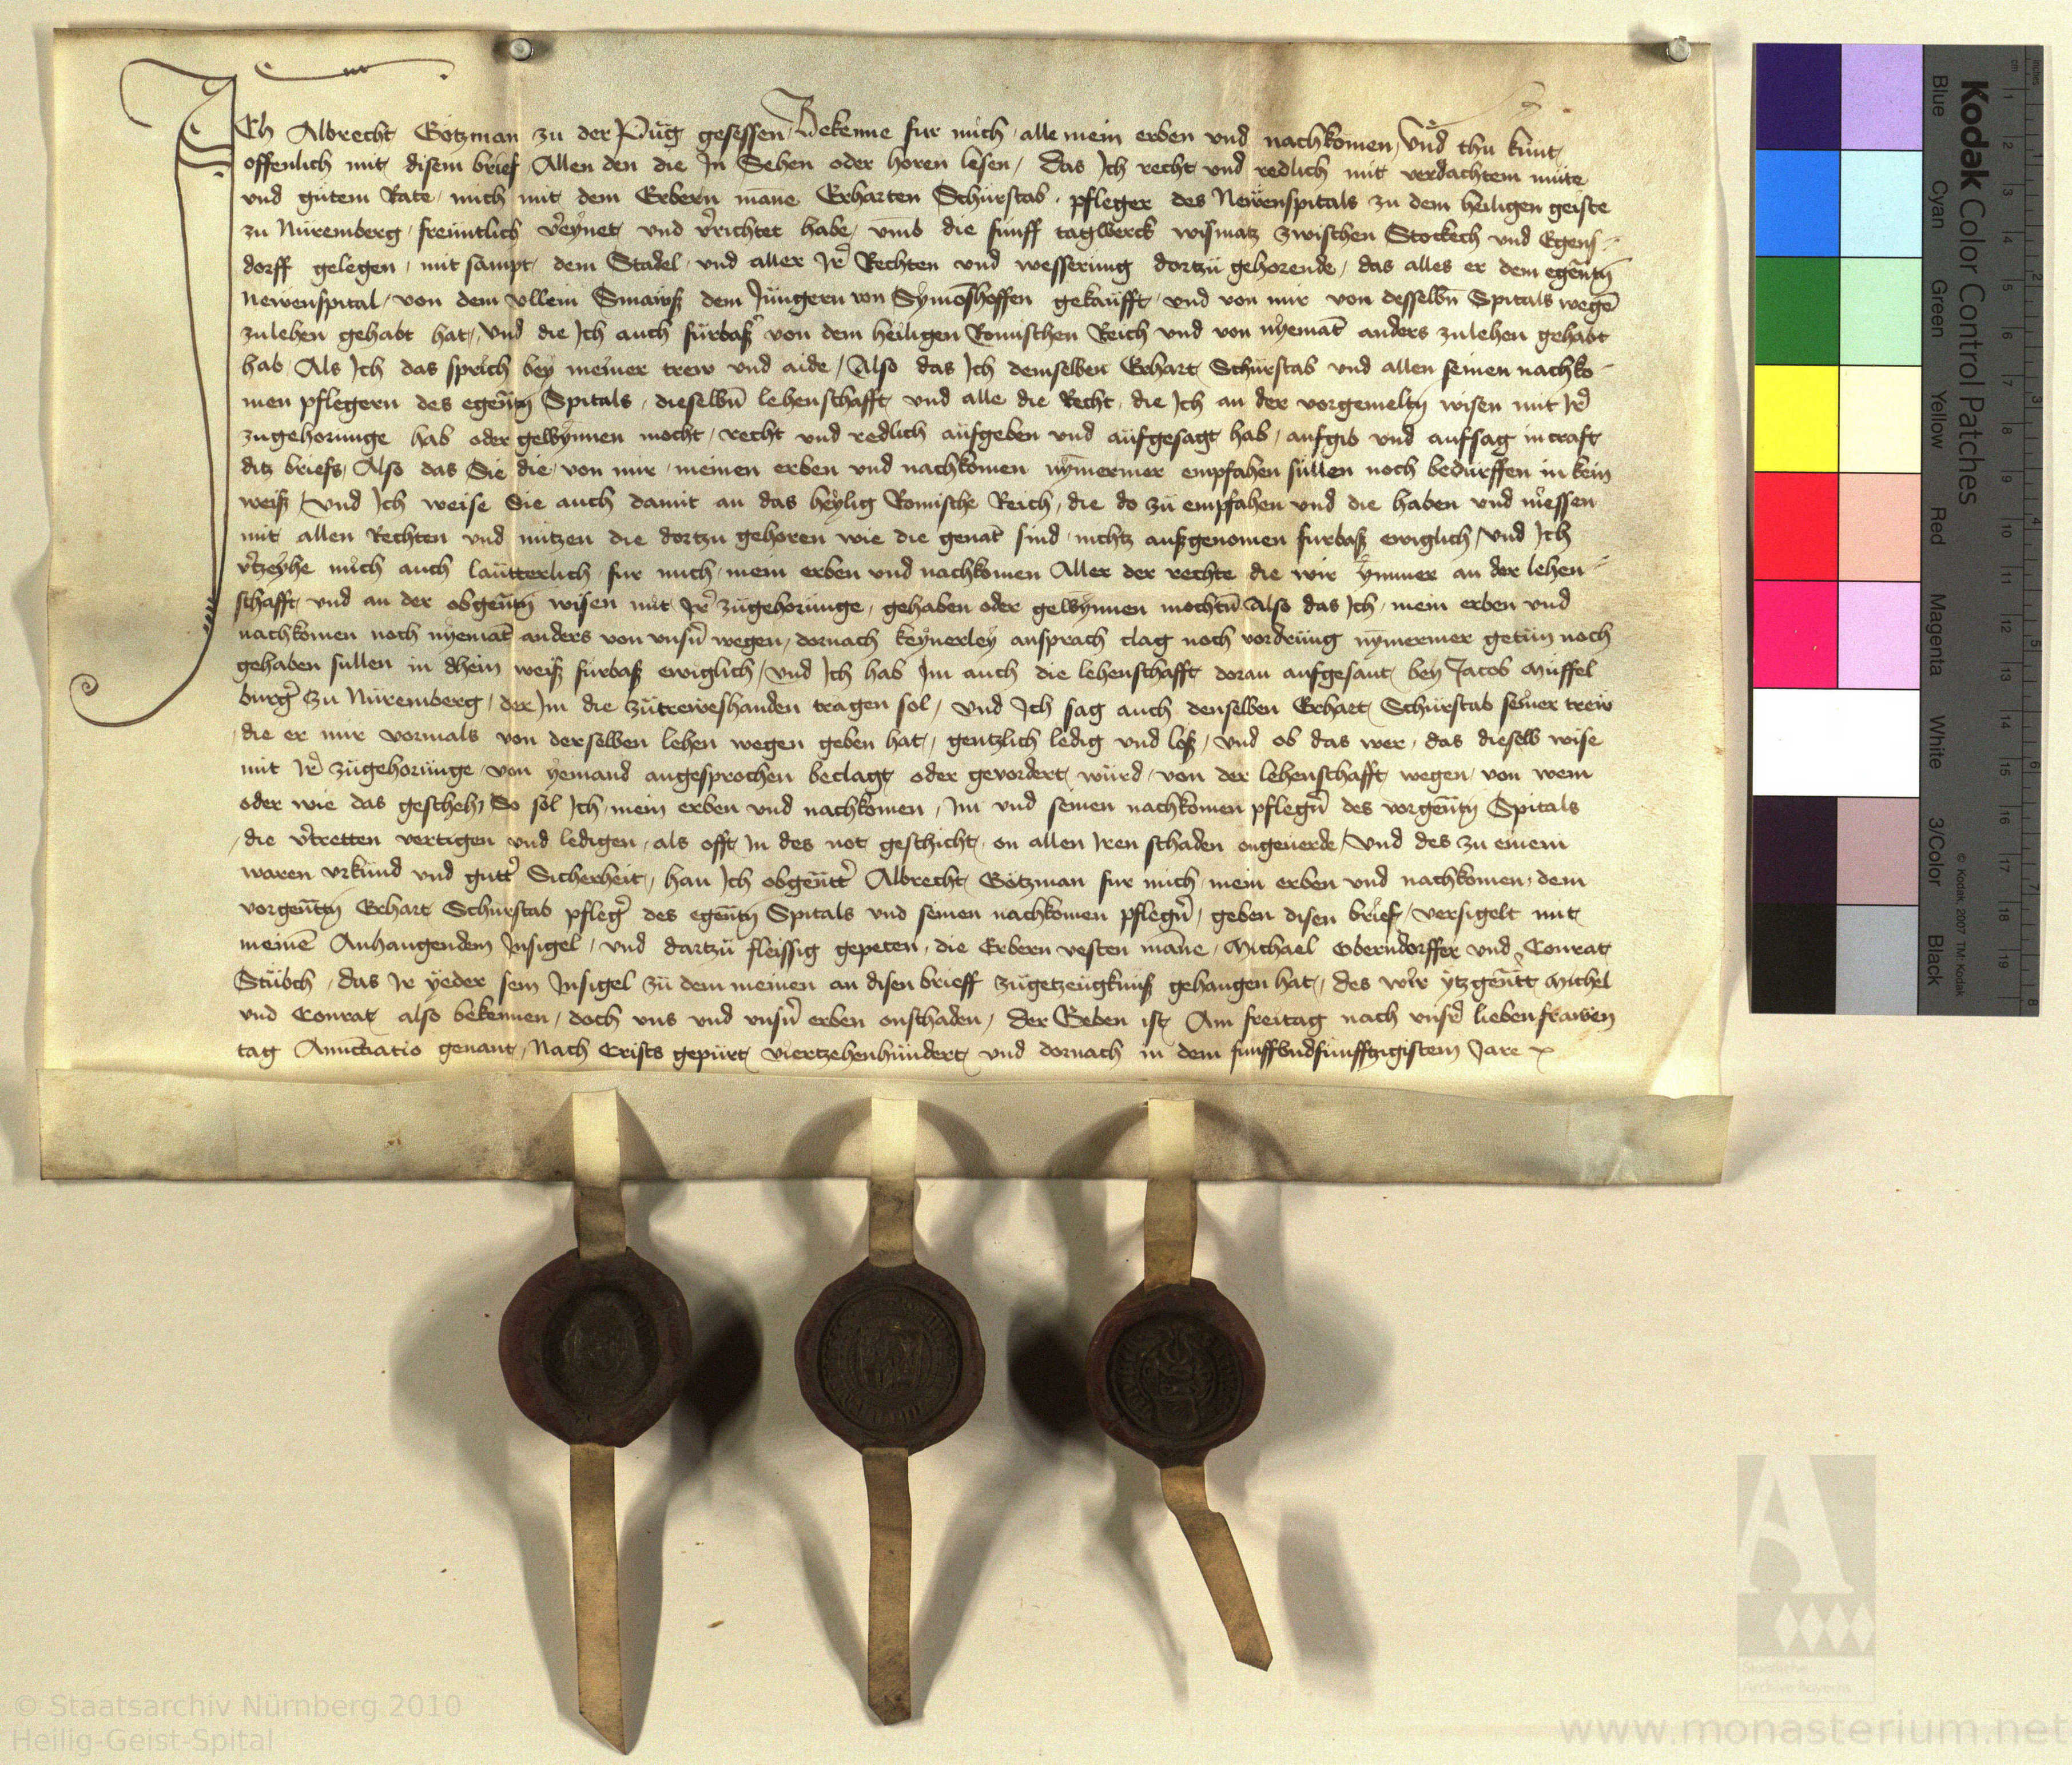 Ich Albrecht Götzman zu der Püg gesessen, Bekenne fur mich, alle mein erben und nachkomen, Und thu kunt,
offenlich mit disem brief Allen den die In Sehen oder horen lesen, das Ich recht und redlich mit verdachtem mute
und gutem Rate, mich mit dem Erbern manne Erharten Schürstab, pfleger des Newenspitals zu dem heiligen geiste
zu Nüremberg, freuntlich v'eynet und v'richtet habe, umb die funff tagwerck wismatz zwischen Stockech und Egens-
dorff gelegen, mit sampt dem Stadel, und aller Ir' Rechten und wesserung dortzu gehorende, das alles er dem egen̄tn̄
Newenspital, von dem Ullein dem Jüngern von gekaufft, und von mir von desselbn̄ Spitals wegē
zulehen gehabt hat, Und die Ich auch fürbaß von dem heiligen Romischen Reich und von nyemāt anders zulehen gehabt
hab, Als Ich das sprich bey meiner trew und aide, Also das Ich demselben Erhart Schürstab und allen seinen nachko-
men pflegern des egen̄tn̄ Spitals, dieselbn̄ lehenschafft und alle die Recht, die Ich an der vorgemeltn̄ wisen mit Ir'
zugehorunge hab oder gewynnen mocht, recht und redlich aufgeben und aufgesagt hab, aufgib und aufsag in craft
ditz briefs, Also das Sie die, von mir, meinen erben und nachkomen nymermer empfahen sullen noch bedurffen in kein
weiß, Und Ich weise Sie auch damit an das heylig Romische Reich, die do zu empfahen und die haben und niessen
mit allen Rechten und nutzen die dortzu gehoren wie die genāt sind, nichtz außgenomen furbaß ewiglich, Und Ich
v'tzeyhe mich auch lautterlich, fur mich, mein erben und nachkomen Aller der rechte die wir ymmer an der lehen-
schafft, und an der obgen̄tn̄ wisen mit Ir' zugehorunge, gehaben oder gewynnen mochtn̄ Also das Ich, mein erben und
nachkomen noch nyemāt anders von unsn̄ wegen, dornach keynerley ansprach clag noch vordrung nymermer getun noch
gehaben sullen in dhein weiß furbaß ewiglich, Und Ich hab Im auch die lehenschafft doran aufgesant, bey Jacob Müffel
burg' zu Nüremberg, der Im die zutreweshanden tragen sol, Und Ich sag auch denselben Erhart Schürstab seiner trew
die er mir vormals von derselben lehen wegen geben hat, gentzlich ledig und loß, Und ob das wer, das dieselb wise
mit Ir' zugehorunge, von yemand angesprochen beclagt oder gevordert würd, von der lehenschafft wegen, von wem
oder wie das gescheh, So sol Ich, mein erben und nachkomen, Im und seinen nachkomen pflegn̄ des vorgen̄tn̄ Spitals
die v'tretten vertigen und ledigen, als offt In des not geschicht, on allen Iren schaden ongeuerde, Und des zu einem
waren urkund und gutt' Sicherheit, han Ich obgen̄tt' Albrecht Götzman fur mich, mein erben und nachkomen, dem
vorgen̄tn̄ Erhart Schürstab pfleg' des egen̄tn̄ Spitals und seinen nachkomen pflegn̄, geben disen brief, versigelt mit
meinē Anhangendem Insigel, und dartzu fleissig gepeten, die Erbern vesten mane, Michael Oberndorffer und Conrat
Stübch, das Ir yeder sein Insigel zu dem meinen an disen brieff zugetzeugknuß gehangen hat, des wir ytzgen̄tt Michel
und Conrat also bekennen, doch uns und unsn̄ erben onschaden, Der Geben ist, Am freitag nach unsr' lieben frawen
tag Annūciatio genant, Nach Crists gepurt viertzehenhundert und dornach in dem funffundfunfftzigistem Jare
Kodak Color Control Patches
Blue Cyan Green Yellow Red Magenta White 3/Color Black
© Kodak, 2007 TM: Kodak
cm 1 2 3 4 5 6 7 8 9 10 11 12 13 14 15 16 17 18 19
inches 1 2 3 4 5 6 7 8
© Staatsarchiv Nürnberg 2010
Heilig-Geist-Spital
A
Staatliche
Archive Bayerns
www.monasterium.net